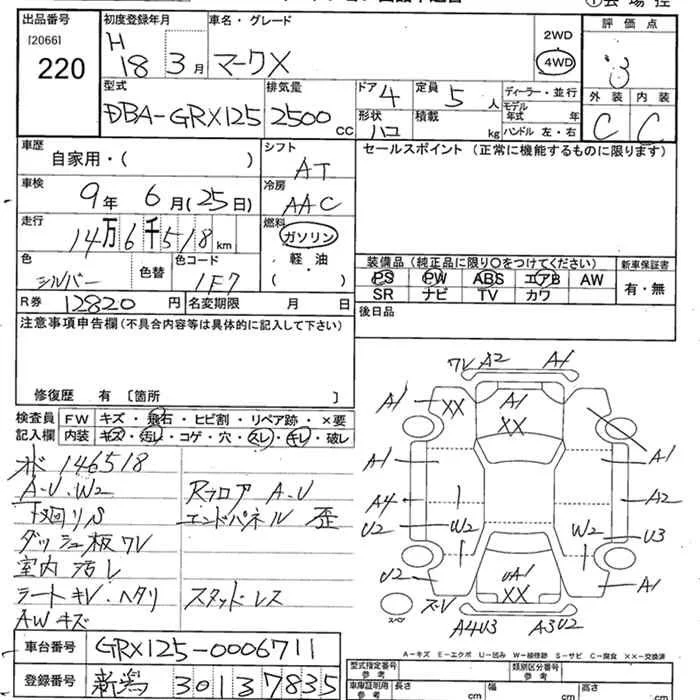 出品番号
[2066]
220
初度登録年月
H
18 3月
車名・グレード
マークX
2WD
4WD
評価点
3
外装 内装
C C
型式
DBA-GRX125
排気量
2500 CC
ドア 4
形状 ハコ
定員 5 人
積載 kg
ディーラー・並行
モデル年式 年
ハンドル 左・右
車歴
自家用・( )
シフト
AT
セールスポイント (正常に機能するものに限ります)
車検
9年 6月(25日)
冷房
AAC
走行
14万6千518km
燃料
ガソリン
軽・油
( )
色
シルバー
色替
色コード
1F7
装備品(純正品に限り○をつけてください)
PS PW ABS エアB AW
SR ナビ TV カワ
新車保証書
有・無
R券 12820円
名変期限 月 日
後日品
注意事項申告欄(不具合内容等は具体的に記入して下さい)
修復歴 有 〔箇所 〕
検査員記入欄
FW キズ・飛石・ヒビ割・リペア跡・×要
内装 キズ・汚レ・コゲ・穴・スレ・キレ・破レ
メ 146518
A-U・W2
下廻りS
ダッシュ板ワレ
室内汚レ
シートキレ・ヘタリ
AWキズ
Rフロア A-U
エンドパネル 歪
スタッドレス
ワレ A2 A1
A1 XX A1 XX
A1 A1
A4 A2
U2 W2 W2 U3
U2 UA1 XX A1
スペア ズレ
A4U3 A3U2
A-キズ E-エクボ U-凹み W-補修跡 S-サビ C-腐食 ××-交換済
車台番号 GRX125-0006711
登録番号 新潟 301 ラ 7835
型式指定番号 参考
類別区分番号 参考
車庫証明用 参考
長さ cm
幅 cm
高さ cm